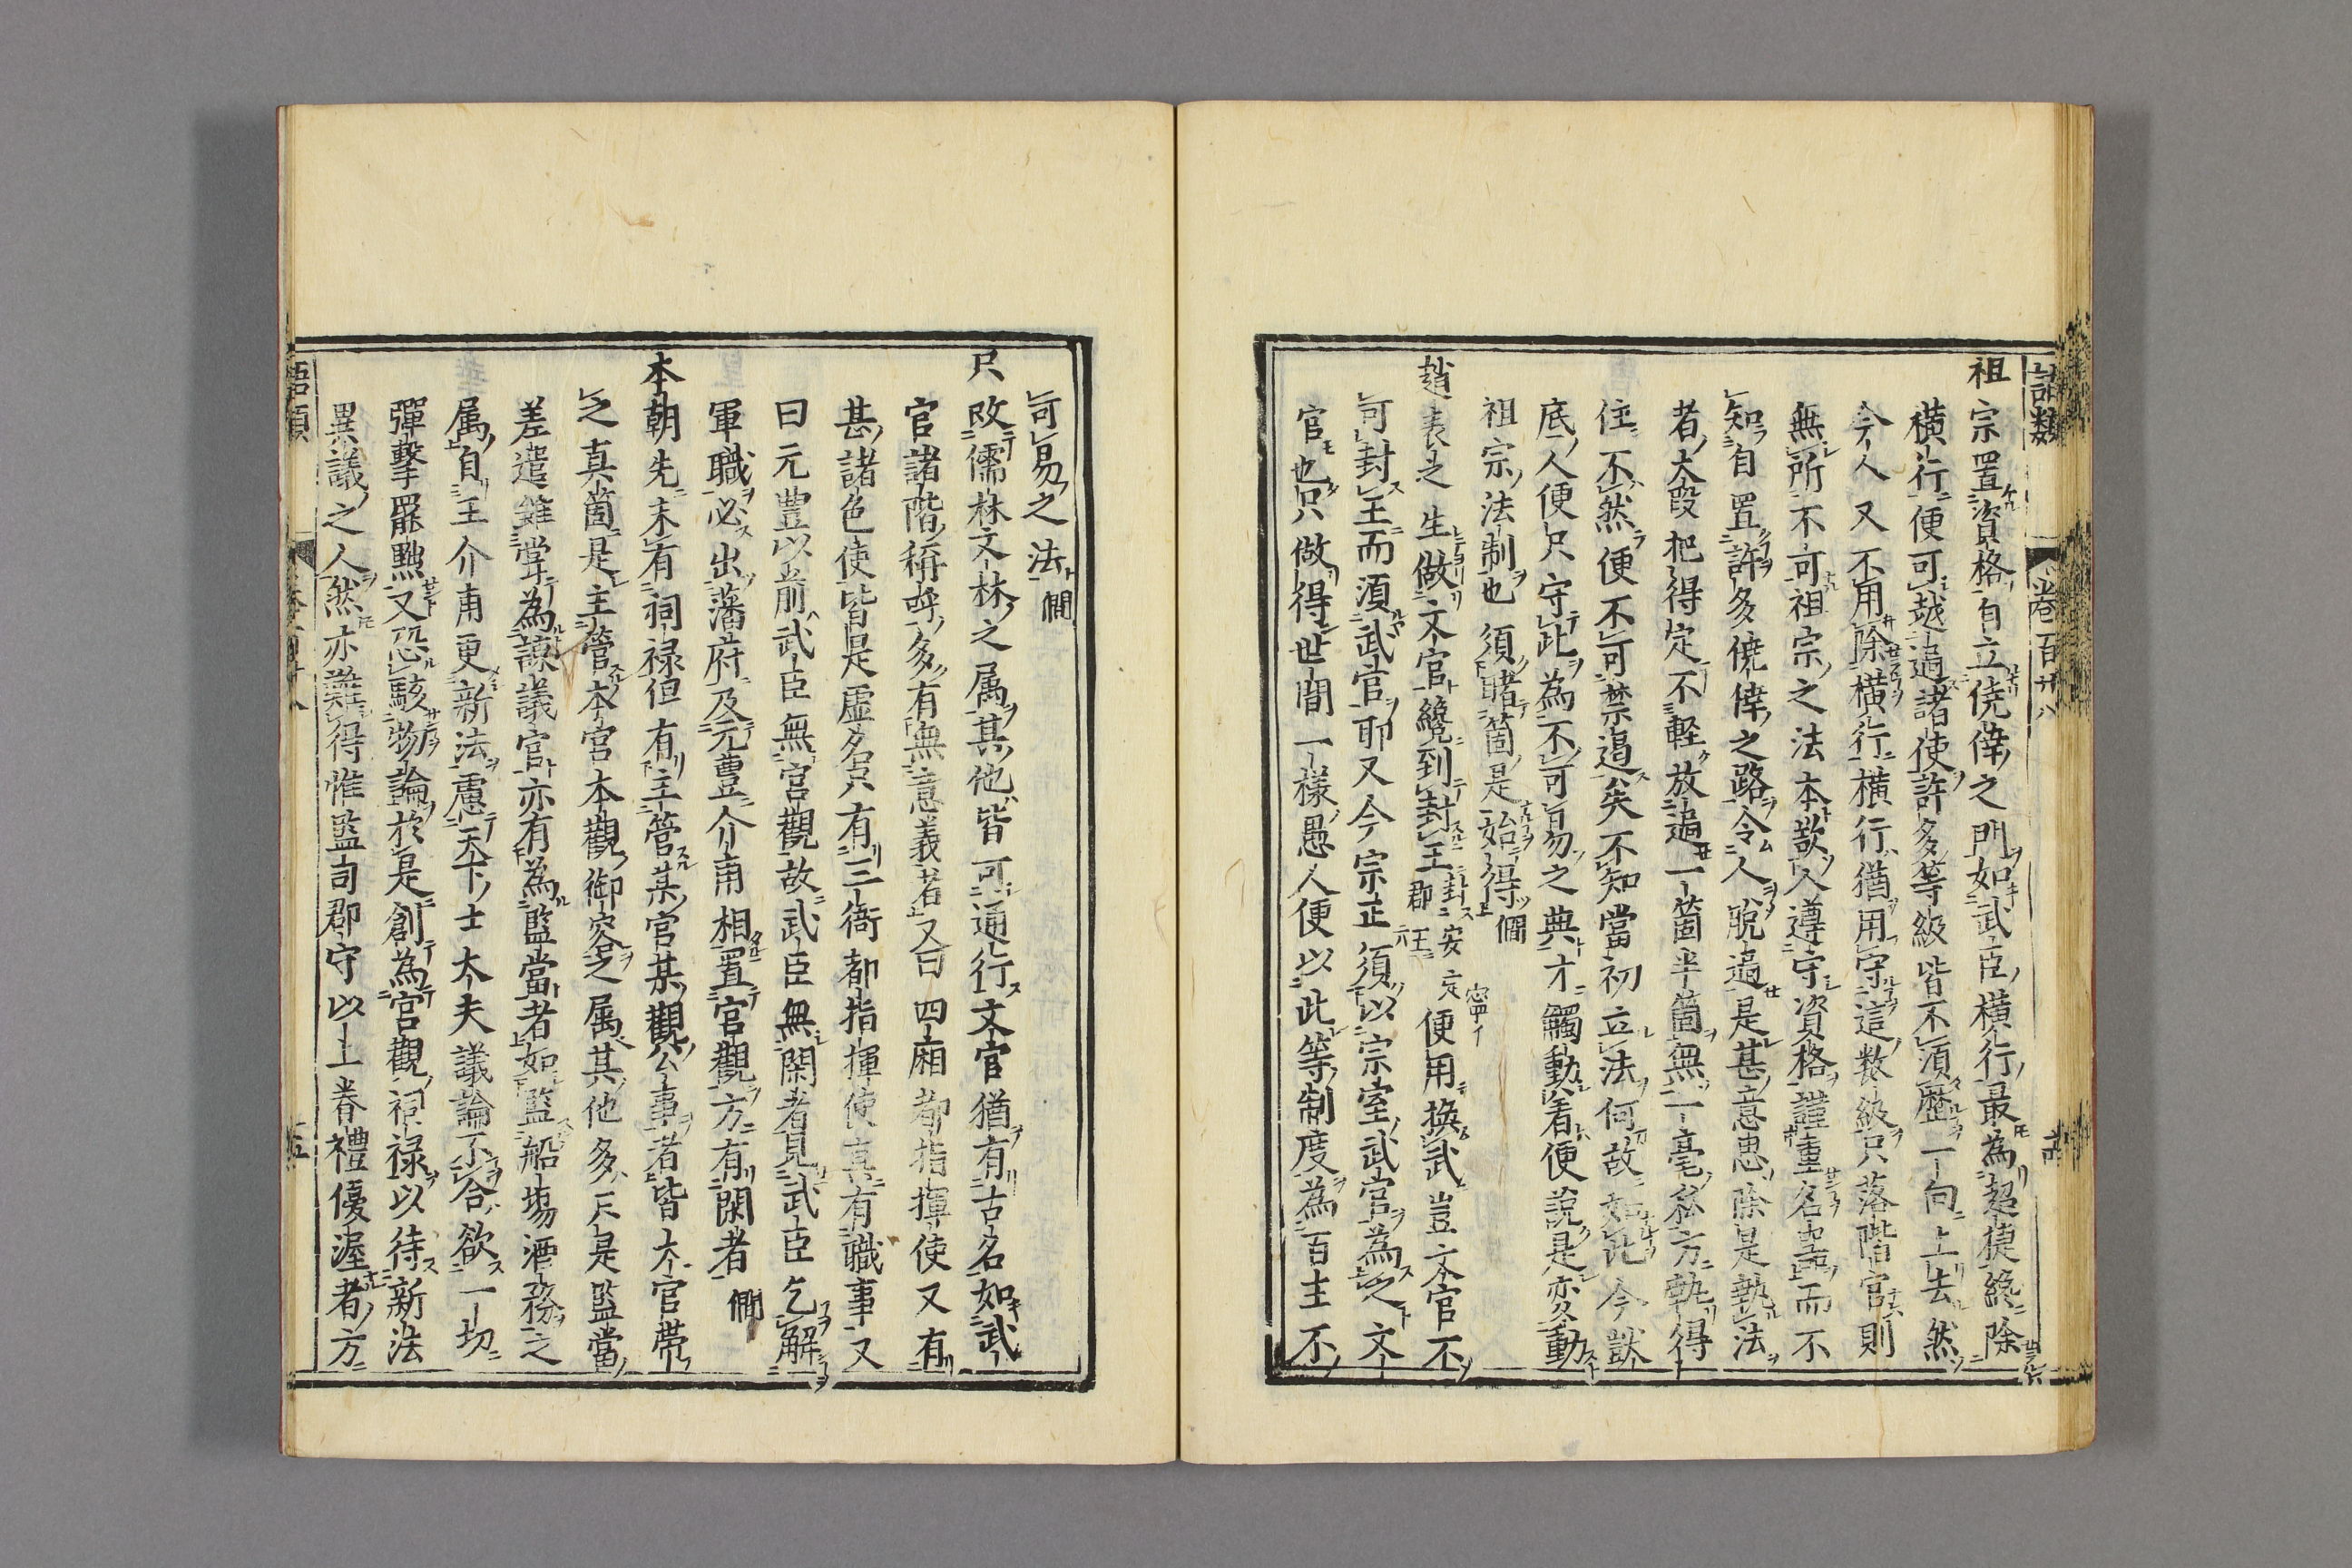 語類 卷百廿八
祖宗置資格自立僥倖之門如武臣橫行最為超捷纔除
橫行便可越過諸使許多等級皆不須歷一向上去然
今人又不用除橫行橫行猶用守這數級只落階官則
無所不可祖宗之法本欲人遵守資格謹重名器而不
知自置許多僥倖之路令人脫過是甚意思除是執法
者大段把得定不輕放過一箇半箇無一毫私方執得
住不然便不可禁遏矣不知當初立法何故如此今獃
底人便只守此為不可易之典才觸動着便說是変動
祖宗法制也須睹箇是始得 僩
趙表之生做文官纔到封王封安定郡王便用換武豈文官不
可封王而須武官耶又今宗正須以宗室武官為之文
官也只做得世間一樣愚人便以此等制度為百主不
可易之法 僩
只改儒林文林之属其他皆可通行文官猶有古名如武
官諸階稱呼多有無意義者又曰四廂都指揮使又有
甚諸色使皆是虛名只有三衙都指揮使真有職事又
曰元豊以前武臣無宮觀故武臣無閑者見武臣乞解
軍職必出藩府及元豊介甫相置宮觀方有閑者 僩
本朝先未有祠禄但有主管某宮某觀公事者皆大官帶
之真箇是主管本宮本觀御容之属其他多只是監當
差遣雖嘗為諫議官亦有為監當者如監船塲酒務之
属自王介甫更新法慮天下士大夫議論不合欲一切
彈擊罷黜又恐駭物論於是創為宮觀祠禄以待新法
異議之人然亦難得惟監司郡守以上眷禮優渥者方
語類